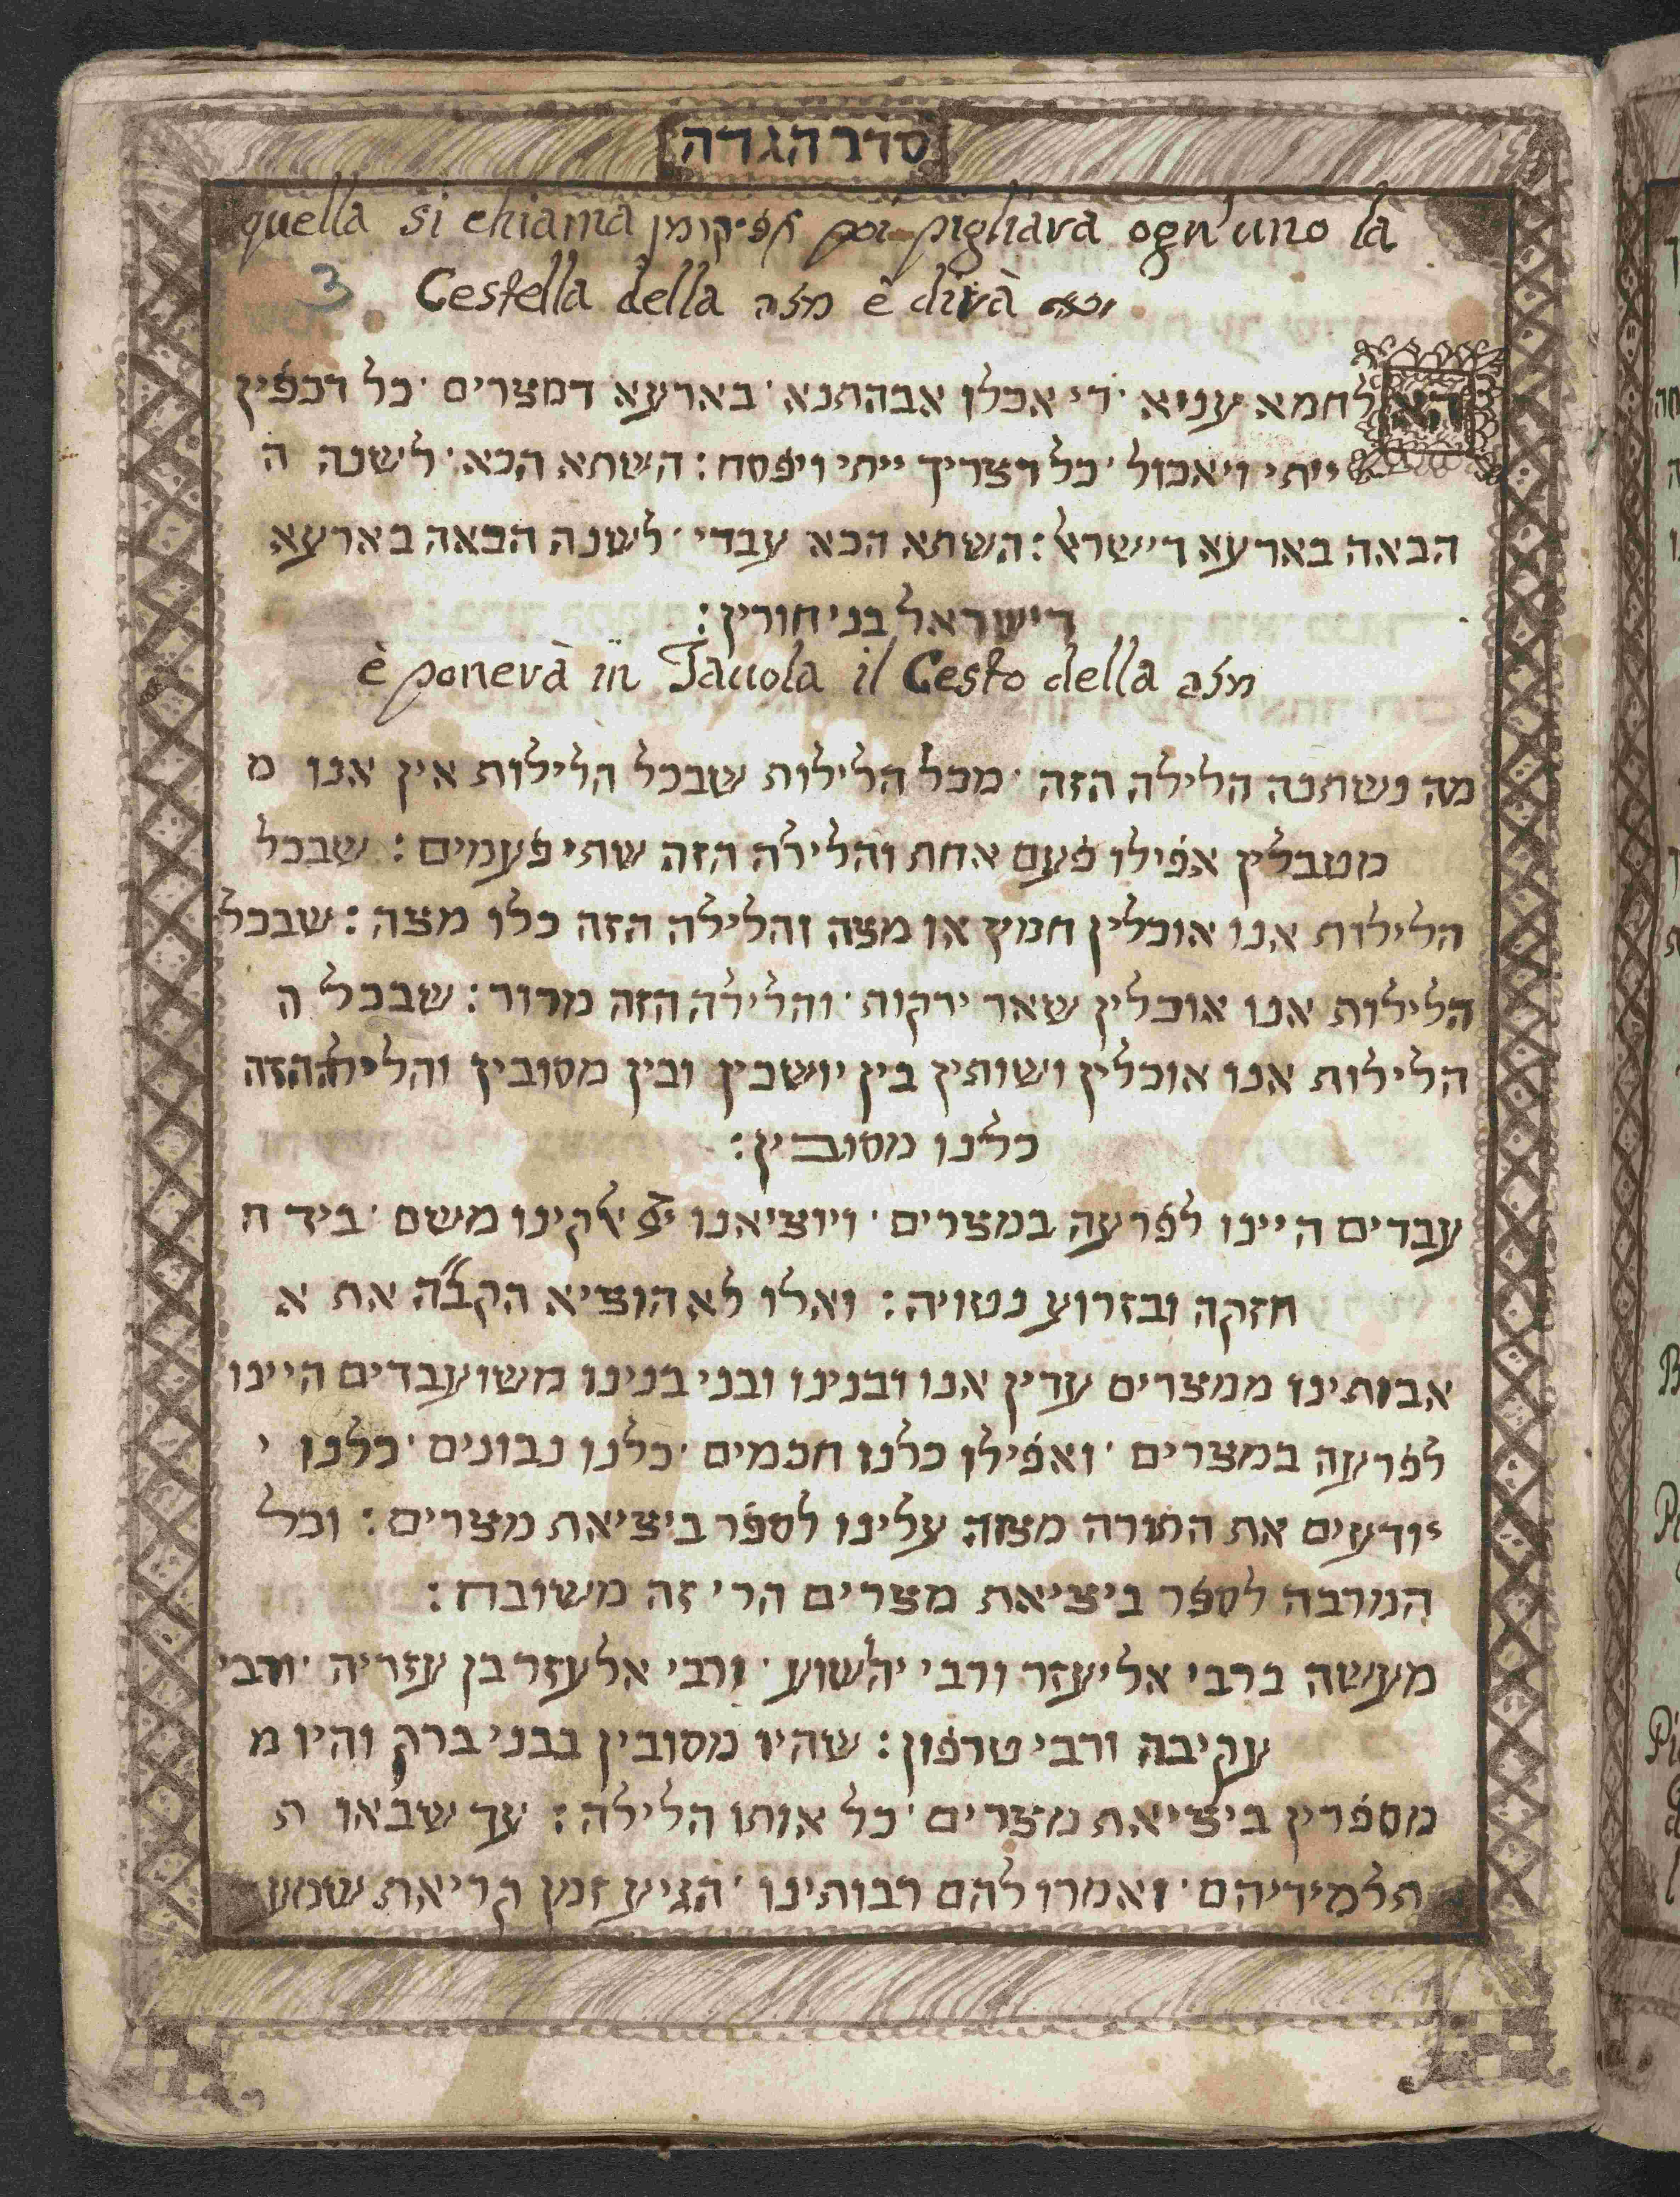 סדר הגדה
quella si chiama אפיקומן poi pigliara ogn'uno la
3 Cestella della מצה è dirà
הא לחמא עניא · די אכלו אבהתנא · בארעא דמצרים · כל דכפין
ייתי ויאכול · כל דצריך ייתי ויפסח : השתא הכא · לשנה ה
הבאה בארעא דישראל : השתא הכא עבדי · לשנה הבאה בארעא
דישראל בני חורין :
è ponerà in Tauola il Cesto della מצה
מה נשתנה הלילה הזה · מכל הלילות שבכל הלילות אין אנו מ
מטבלין אפילו פעם אחת והלילה הזה שתי פעמים : שבכל
הלילות אנו אוכלין חמץ או מצה והלילה הזה כלו מצה : שבכל
הלילות אנו אוכלין שאר ירקות · והלילה הזה מרור : שבכל ה
הלילות אנו אוכלין ושותין בין יושבין ובין מסובין והלילה הזה
כלנו מסובין :
עבדים היינו לפרעה במצרים · ויוציאנו יי אלקינו משם · ביד ח
חזקה ובזרוע נטויה : ואלו לא הוציא הקב״ה את א
אבותינו ממצרים עדין אנו ובנינו ובני בנינו משועבדים היינו
לפרעה במצרים · ואפילו כלנו חכמים · כלנו נבונים · כלנו י
יודעים את התורה מצוה עלינו לספר ביציאת מצרים : וכל
המרבה לספר ביציאת מצרים הרי זה משובח :
מעשה ברבי אליעזר ורבי יהושוע · ורבי אלעזר בן עזריה · ורבי
עקיבה ורבי טרפון : שהיו מסובין בבני ברק והיו מ
מספרין ביציאת מצרים · כל אותו הלילה : עד שבאו ת
תלמידיהם · ואמרו להם רבותינו · הגיע זמן קריאת שמע